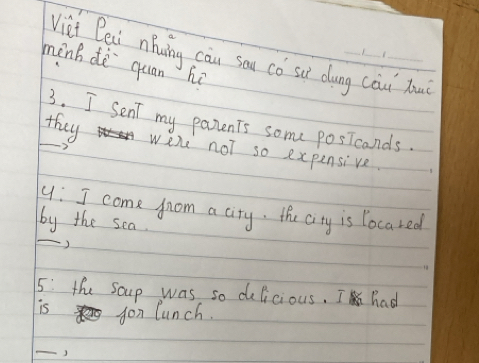 Viết lại những câu sau có sử dụng cấu trúc
mệnh đề quan hệ
3. I sent my parents some postcards.
they were not so expensive.
→
4: I come from a city. the city is located
by the sea.
→
5: the soup was so delicious. I had
is for lunch.
→